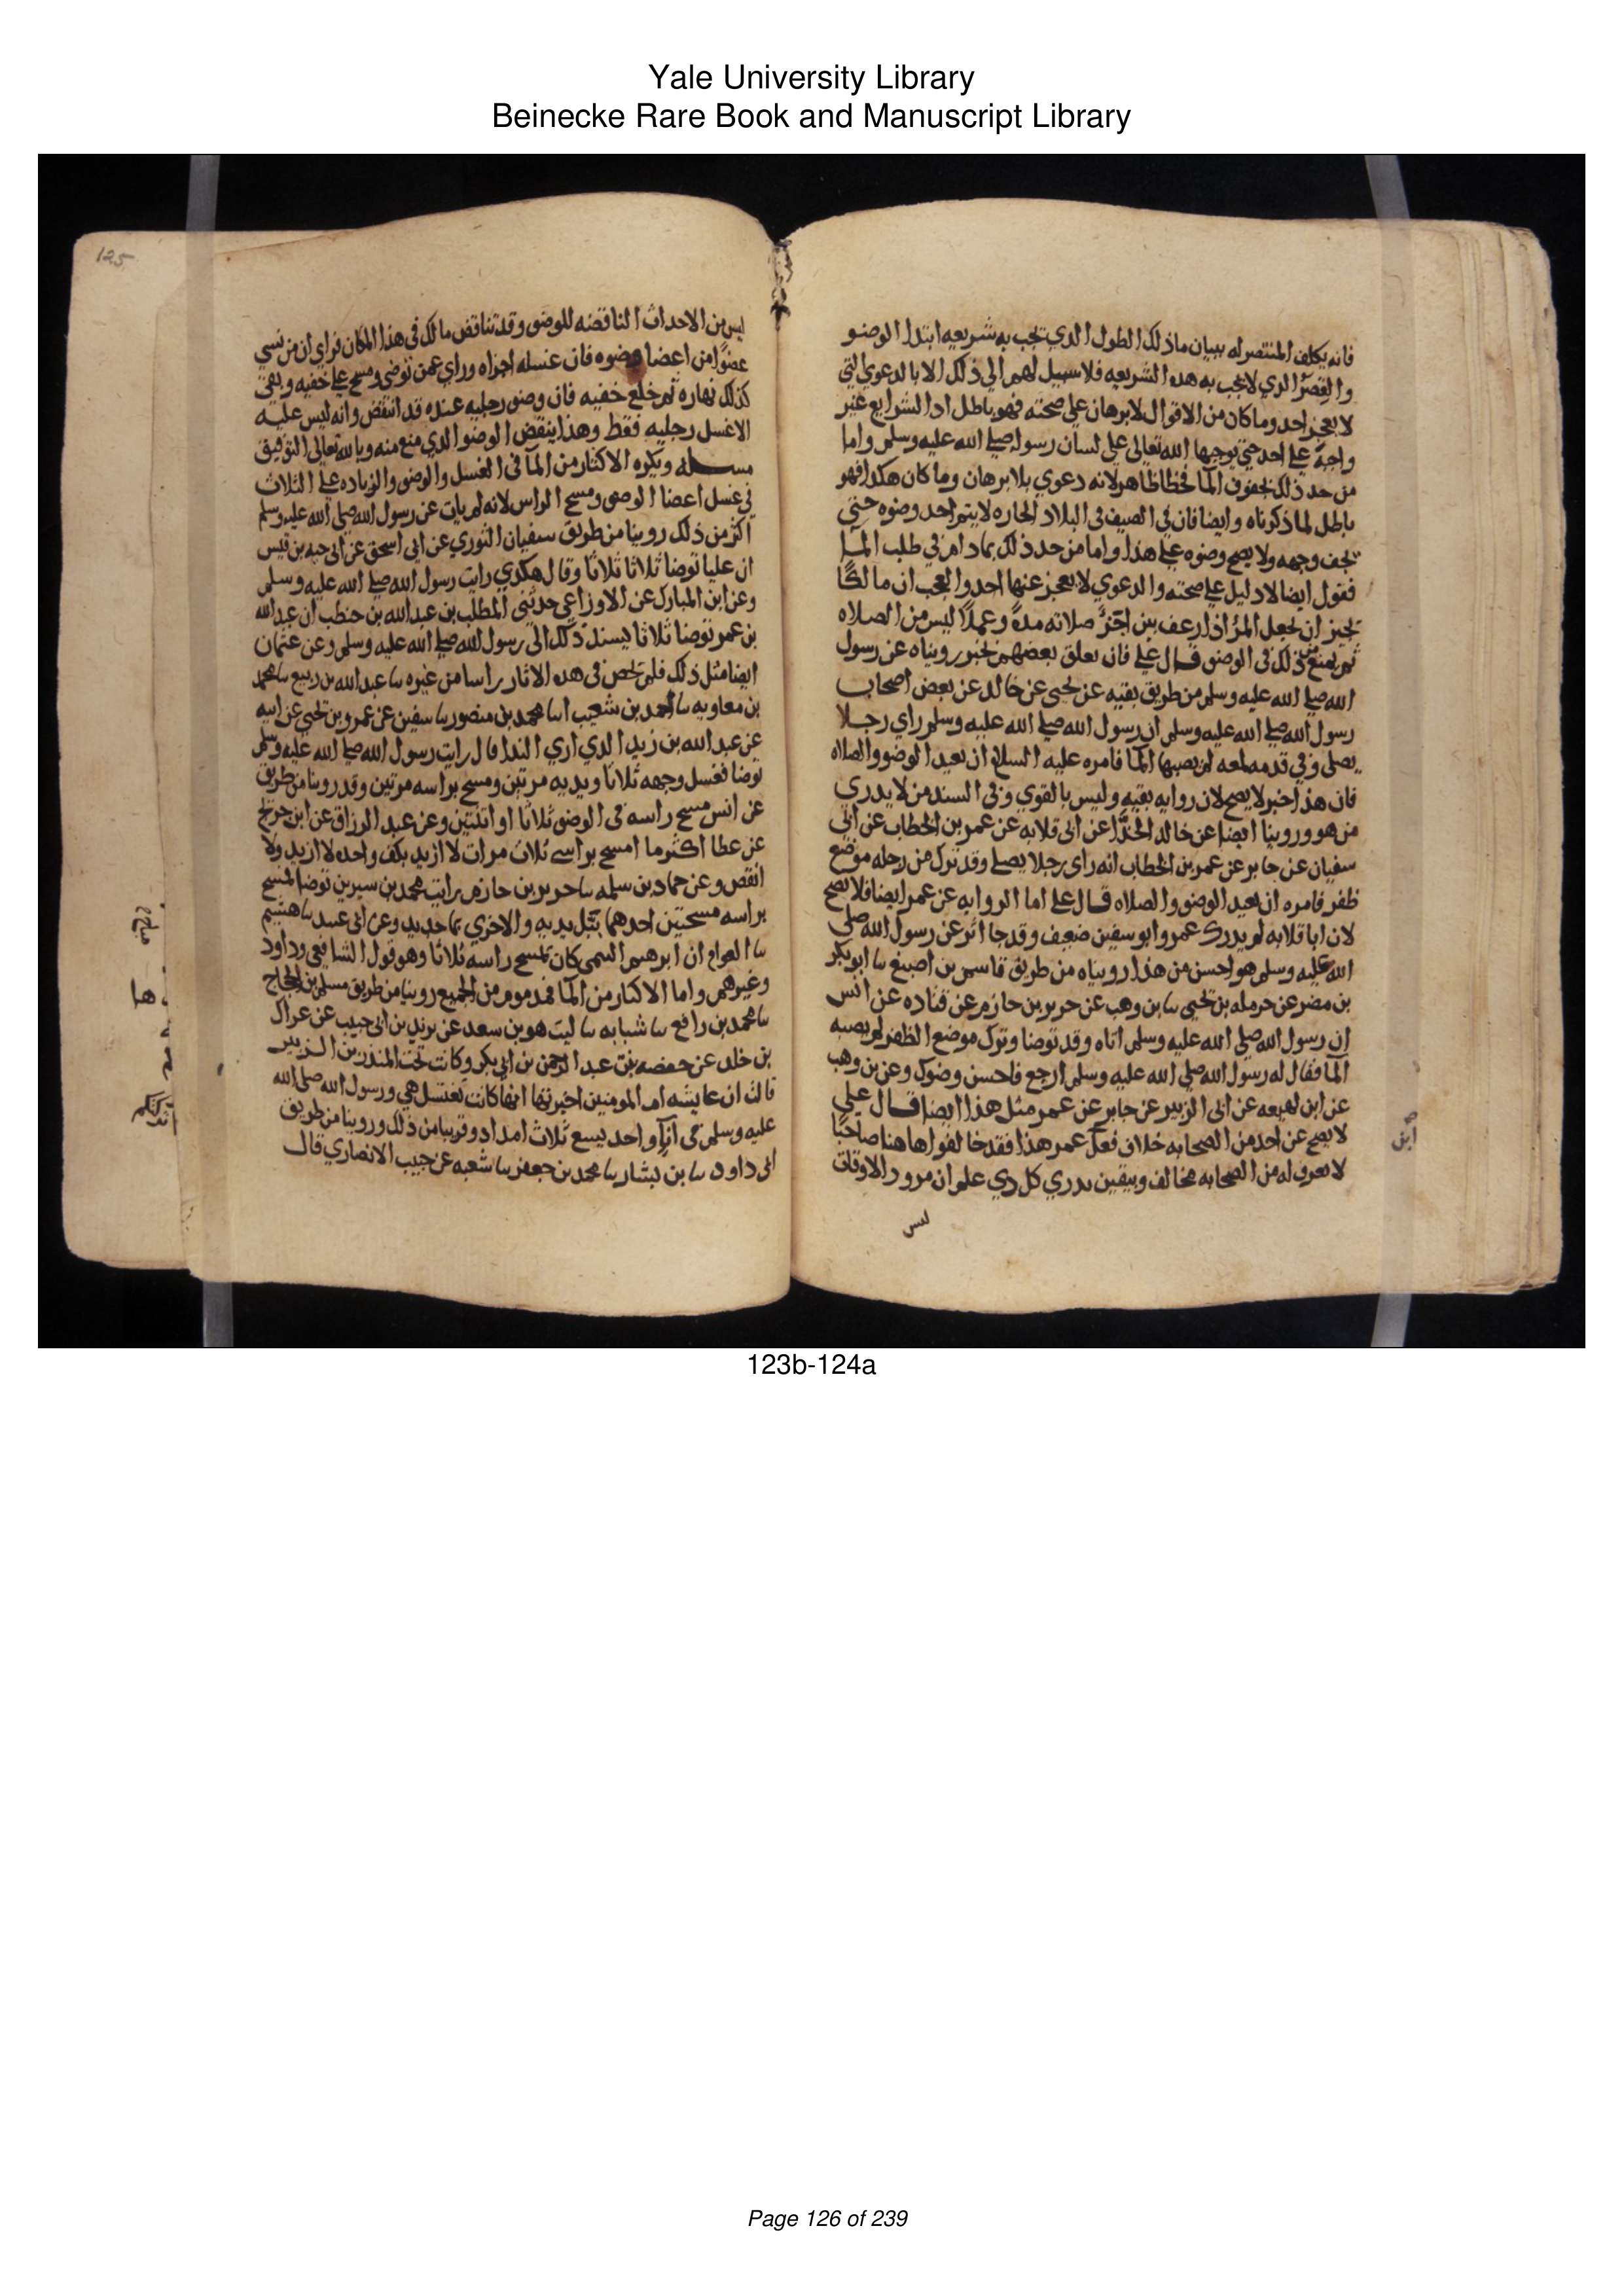 Yale University Library
Beinecke Rare Book and Manuscript Library
فانه يكلف المنتصر له ببيان ماذلك الطول الدي تجب به شريعه ابتدا الوضو
والقصر الدي لا تجب به هده الشريعه فلا سبيل لهم الي ذلك الا بالدعوي التي
لا يعجز احد وما كان من الاقوال لا برهان علي صحته فهو باطل اد الشرايع غير
واجبة علي احد حتي يوجبها الله تعالي علي لسان رسوله صلي الله عليه وسلم واما
من حد ذلك بجفوف الما فخطا ظاهر لانه دعوي بلا برهان وما كان هكدا فهو
باطل لما ذكرناه وايضا فان في الصيف في البلاد الحاره لا يتم احد وضوه حتي
يجف وجهه ولا يصح وضوه علي هذا واما من حد ذلك بمادام في طلب الما
فقول ايضا لا دليل علي صحته والدعوي لا يعجز عنها احد والعجب ان مالكا
يجيز ان يجعل المر اذا رعف بين اجزا صلاته مدة وعملا ليس من الصلاه
ثم يمنع من ذلك في الوضو قال علي فان تعلق بعضهم بخبر رويناه عن رسول
الله صلي الله عليه وسلم من طريق بقيه عن بحيى عن خالد عن بعض اصحاب
رسول الله صلي الله عليه وسلم ان رسول الله صلي الله عليه وسلم راي رجلا
يصلي وفي قدمه لمعه لم يصبها الما فامره عليه السلام ان يعيد الوضو والصلاه
فان هذا خبر لا يصح لان راويه بقيه وليس بالقوي وفي السند من لا يدري
من هو وروينا ايضا عن خالد الحذا عن ابي قلابه عن عمر بن الخطاب عن ابي
سفيان عن جابر عن عمر بن الخطاب انه راى رجلا يصلي وقد ترك من رجله موضع
ظفر فامره ان يعيد الوضو والصلاه قال علي اما الروايه عن عمر ايضا فلا تصح
لان ابا قلابه لم يدرك عمر وابو سفين ضعيف وقد جا اثر عن رسول الله صلي
الله عليه وسلم هو احسن من هذا رويناه من طريق قاسم بن اصبغ سا ابو بكر
بن مضر عن حرمله بن يحيي سا بن وهب عن جرير بن حازم عن قتاده عن انس
ان رسول الله صلي الله عليه وسلم اتاه وقد توضا وترك موضع الظفر لم يصبه
الما فقال له رسول الله صلي الله عليه وسلم ارجع فاحسن وضوك وعن بن وهب
عن ابن لهيعه عن ابي الزبير عن جابر عن عمر مثل هذا ايضا قال علي
لا يصح عن احد من الصحابه خلاف فعل عمر هذا فقد خالفوا هاهنا صاحبا
لا يعرف له من الصحابه مخالف وبيقين يدري كل ذي علم ان مرور الاوقات
ليس
ابن
125
ليس من الاحداث الناقضه للوضو وقد تناقض مالك في هذا المكان فراي ان من نسي
عضوا من اعضا وضوه فان غسله اجزاه وراي عمن توضي ومسح علي خفيه وبقي
كذلك نهاره ثم خلع خفيه فان وضو رجليه عنده قد انتقض وانه ليس عليه
الا غسل رجليه فقط وهذا ينقض الوضو الدي منع منه وبالله تعالي التوفيق
مسله ويكره الاكثار من الما في الغسل والوضو والزياده علي الثلاث
في غسل اعضا الوضو ومسح الراس لانه لم يات عن رسول الله صلي الله عليه وسلم
اكثر من ذلك روينا من طريق سفيان الثوري عن ابي اسحق عن ابي حيه بن قيس
ان عليا توضا ثلاثا ثلاثا وقال هكدي رايت رسول الله صلي الله عليه وسلم
وعن ابن المبارك عن الاوزاعي حدثني المطلب بن عبد الله بن حنطب ان عبد الله
بن عمر توضا ثلاثا يسند ذلك الى رسول الله صلي الله عليه وسلم وعن عثمان
ايضا مثل ذلك فلم تخص في هده الاثار راسا من غيره سا عبد الله بن ربيع سا محمد
بن معاويه سا احمد بن شعيب انا محمد بن منصور سا سفين عن عمرو بن يحيي عن ابيه
عن عبد الله بن زيد الدي اري الندا قال رايت رسول الله صلي الله عليه وسلم
توضا فغسل وجهه ثلاثا ويديه مرتين ومسح براسه مرتين وقد روينا من طريق
عن انس مسح راسه في الوضو ثلاثا او اثنتين وعن عبد الرزاق عن ابن جريج
عن عطا اكثر ما امسح براسي ثلاث مرات لا ازيد بكف واحده لا ازيد ولا
انقص وعن حماد بن سلمه سا جرير بن حازم رايت محمد بن سيرين توضا فمسح
براسه مسحتين احدهما ببلل يديه والاخري بما جديد وعن ابي عبيد سا هشيم
سا العوام ان ابرهيم التيمي كان يمسح راسه ثلاثا وهو قول الشافعي وداود
وغيرهم واما الاكثار من الما فمذموم من الجميع روينا من طريق مسلم بن الحجاج
سا محمد بن رافع سا شبابه سا ليث هو بن سعد عن يزيد بن ابي حبيب عن عراك
بن خلد عن حفصه بنت عبد الرحمن بن ابي بكر وكانت تحت المنذر بن الزبير
قالت ان عايشه ام المومنين اخبرتها انها كانت تغتسل هي ورسول الله صلي الله
عليه وسلم في انا واحد يسع ثلاث امداد وقريبا من ذلك وروينا من طريق
ابي داود سا بن بشار سا محمد بن جعفر سا شعبه عن حبيب الانصاري قال
ها
123b-124a
Page 126 of 239